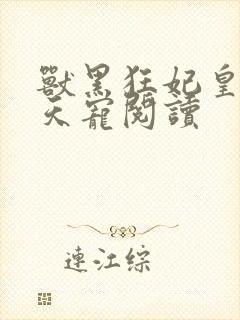 獸黑狂妃皇
天寵閱讀
連江綜